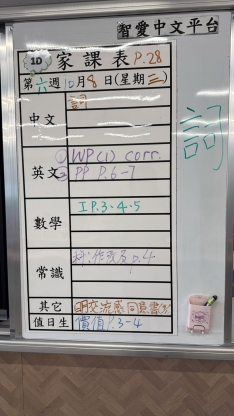 智愛中文平台
1D 家課表 P.28
第六週 10月8日(星期三)
中文 詞
詞
英文 ① WP(1) corr.
② PP P.6-7
數學 工P.3、4、5
常識
其它 交流感同意書
值日生 價值P.3-4